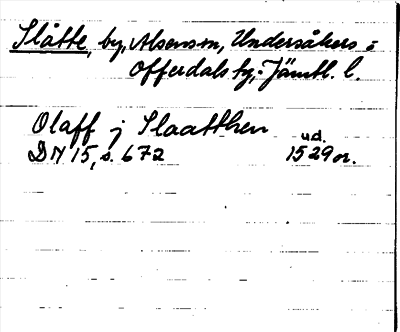 Slåtte, by, Alsens sn, Undersåkers o
Offerdals tg, Jämtl. l.
Olaff j Slaatthen
ud.
DN 15, s. 672 1529 or.